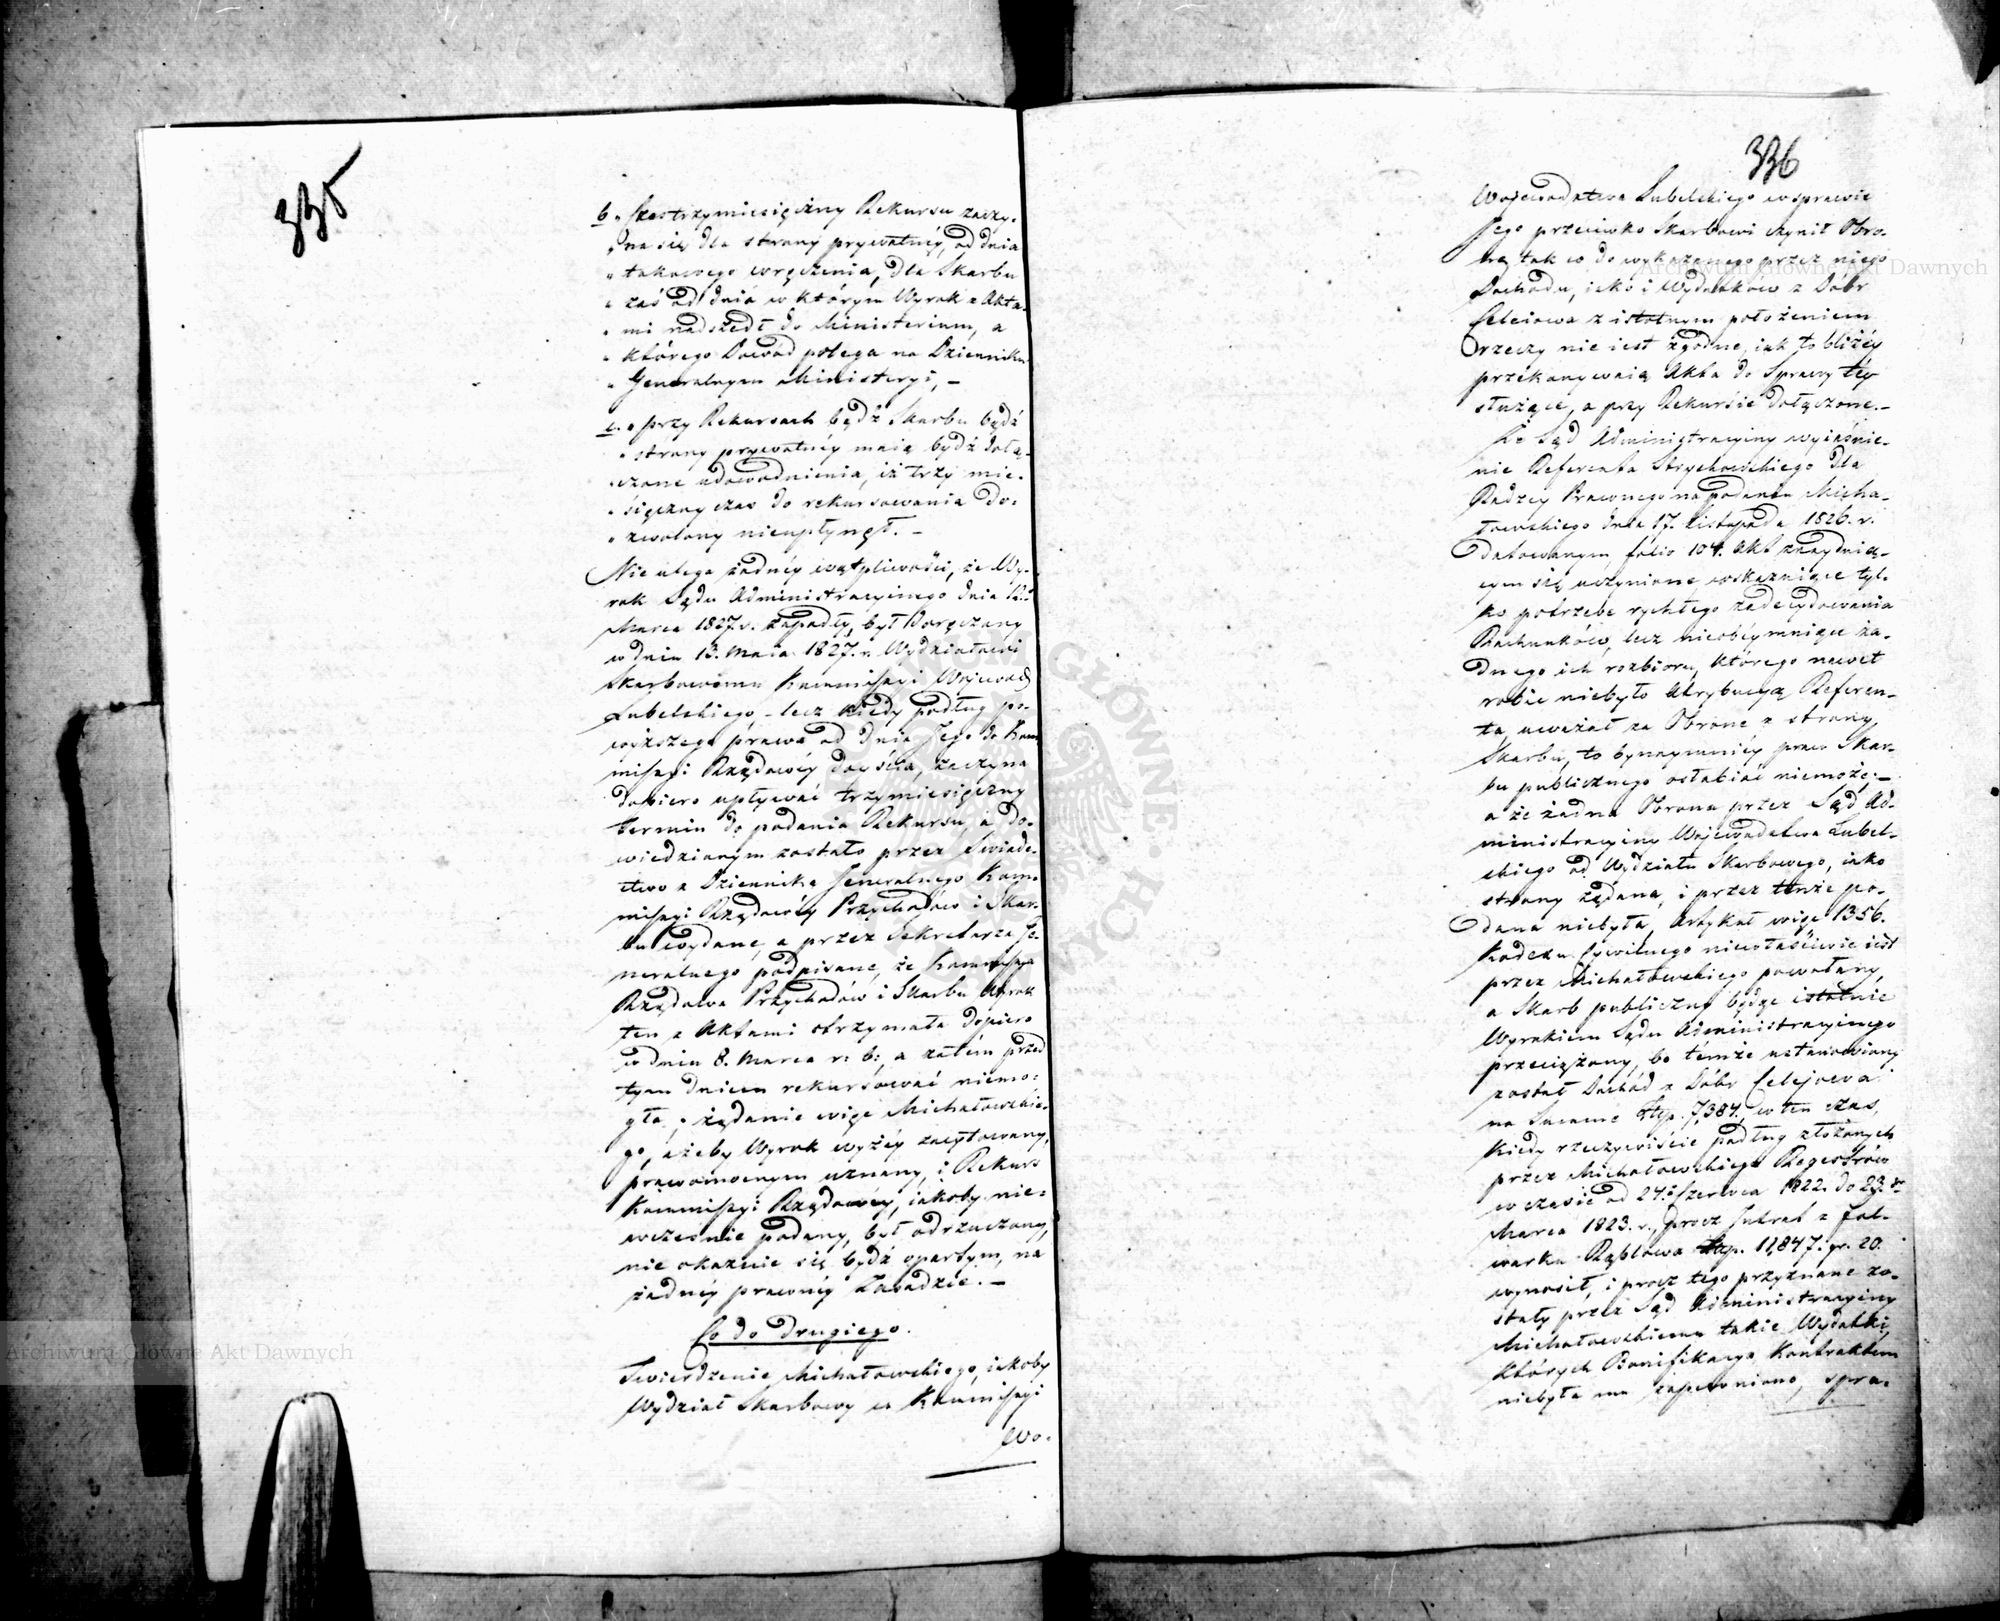 335
b. „ Czas trzymiesięczny Rekursu zaczy-
„ na się dla strony prywatnéy, od dnia
„ takowego wręczenia, dla Skarbu
„ zaś od dnia w którym Wyrok z Akta-
„ mi nadszedł do Ministerium, a
„ którego Dowód polega na Dzienniku
„ Generalnym Ministeryi, –
c. „ przy Rekursach bądź Skarbu bądź
„ strony prywatnéy maią bydź dołą-
„ czone udowodnienia, iż trzy mie-
„ sięczny czas do rekursowania do-
„ zwolony nieupłynął. –
Nie ulega żadnéy wątpliwości, że Wy-
rok Sądu Administracyinego dnia 12.
Marca 1827. r. zapadły, był doręczony
w dniu 13. Maia 1827. r. Wydziałowi
Skarbowemu Kommissyi Wojewódz
Lubelskiego, – lecz kiedy podług po-
wyższego prawa od dnia Jego do Kom-
missyi Rządowey doyścia, zaczyna
dopiero upływać trzymiesięczny
termin do podania Rekursu, a do-
wiedzionym zostało przez Swiade-
ctwo z Dziennika Generalnego Kom-
missyi Rządowéy Przychodów i Skar-
bu wydane, a przez Sekretarza Je-
neralnego podpisane, że Kommissya
Rządowa Przychodów i Skarbu Wyrok
ten z Aktami otrzymała dopiero
w dniu 8. Marca r: b:, a zatém przed
tym dniem rekursować niemo-
gła, żądanie więc Michałowskie-
go, ażeby Wyrok wyżéy zacytowany,
prawomocnym uznany, i Rekurs
Kommissyi Rządowey, jakoby nie-
wcześnie podany, był odrzucony,
nie okazuie się bydź opartym, na
żadnéy prawnéy Zasadzie. –
Co do drugiego.
Twierdzenie Michałowskiego, iakoby
Wydział Skarbowy w Kommissyi
Wo-
336
Województwa Lubelskiego w sprawie
Jego przeciwko Skarbowi czynił Obro-
nę tak w do wykazanego przez niego
Dochodu, iako i Wydatków z Dobr
Celeiowa z istotnym położeniem
rzeczy nie iest zgodne, iak to bliżéy
przekonywaią Akta do Sprawy téy
służące, a przy Rekursie dołączone. –
Że Sąd Administracyiny wyiaśnie-
nie Referenta Strychowskiego dla
Radzcy Prawnego na podaniu Micha-
łowskiego dnia 17. Listopada 1826. r.
datowanym, folio 104. Akt znayduią-
cym się uczynione wskazuiące tyl-
ko potrzebę rychłego zadecydowania
Rachunków, lecz nieobéymuiące ża-
dnego ich rozbioru, którego nawet
robić niebyło Atrybucyą Referen-
ta, uważał za Obronę z strony
Skarbu, to bynaymniéy praw Skar-
bu publicznego osłabiać niemoże. –
a że żadna Obrona przez Sąd Ad-
ministracyiny Województwa Lubel-
skiego od Wydziału Skarbowego, iako
strony żądana, i przez tenże po-
dana niebyła, Artykuł więc 1356.
Kodexu Cywilnego niewłaściwie iest
przez Michałowskiego powołany,
a Skarb publiczny będąc istotnie
Wyrokiem Sądu Administracyinego
przeciążony, bo témże ustanowiony
został Dochód z Dóbr Celejowa
na Summę Złtp. 7,384. w ten czas,
kiedy rzeczywiście podług złożonych
przez Michałowskiego Regestrów
w czasie od 24. Czerwca 1822. do 23.
Marca 1823. r., procz Intrat z fol-
warku Rąblowa Złtp. 11,847. gr. 20.
wynosił, i procz tego przyznane zo-
stały przez Sąd Administracyiny
Michałowskiemu takie Wydatki,
których Bonifikacya Kontraktem
niebyła mu zapewniona, spra-
Archiwum Główne Akt Dawnych
Archiwum Główne Akt Dawnych